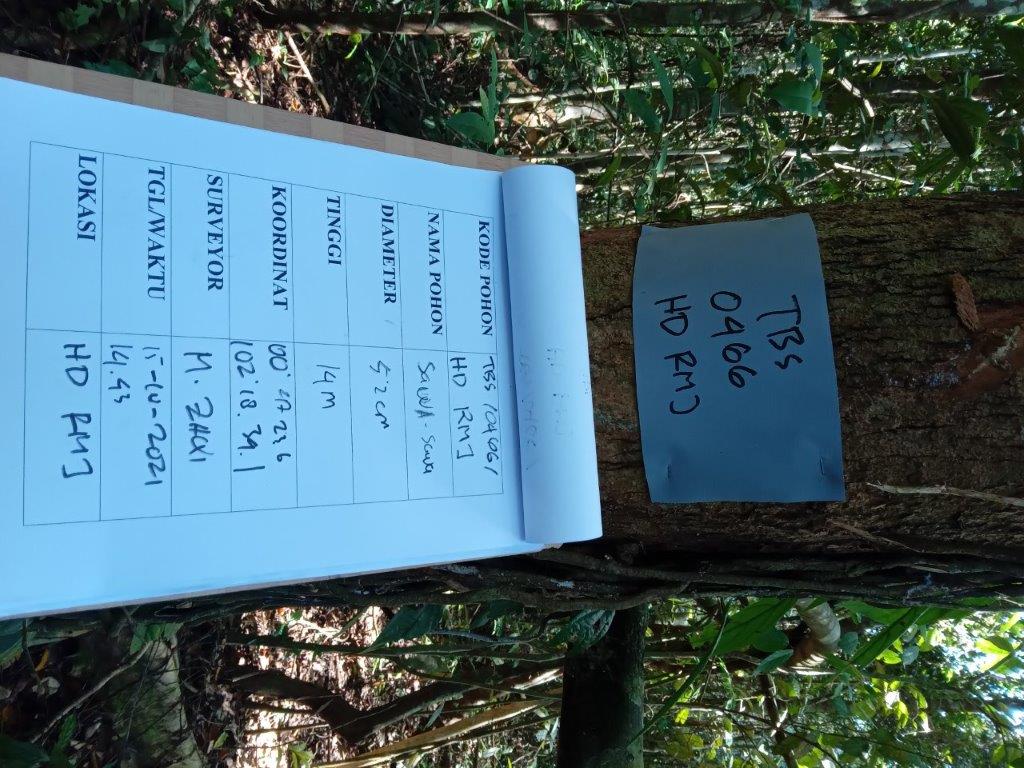 TBS
0466
HD RMJ
KODE POHON TBS /0466/
HD RMJ
NAMA POHON SAWA-SAWA
DIAMETER 52cm
TINGGI 14 M
KOORDINAT 00° 23 6
102° 18. 39. 1
SURVEYOR M.
TGL/WAKTU 2021
14.43
LOKASI HD RMJ